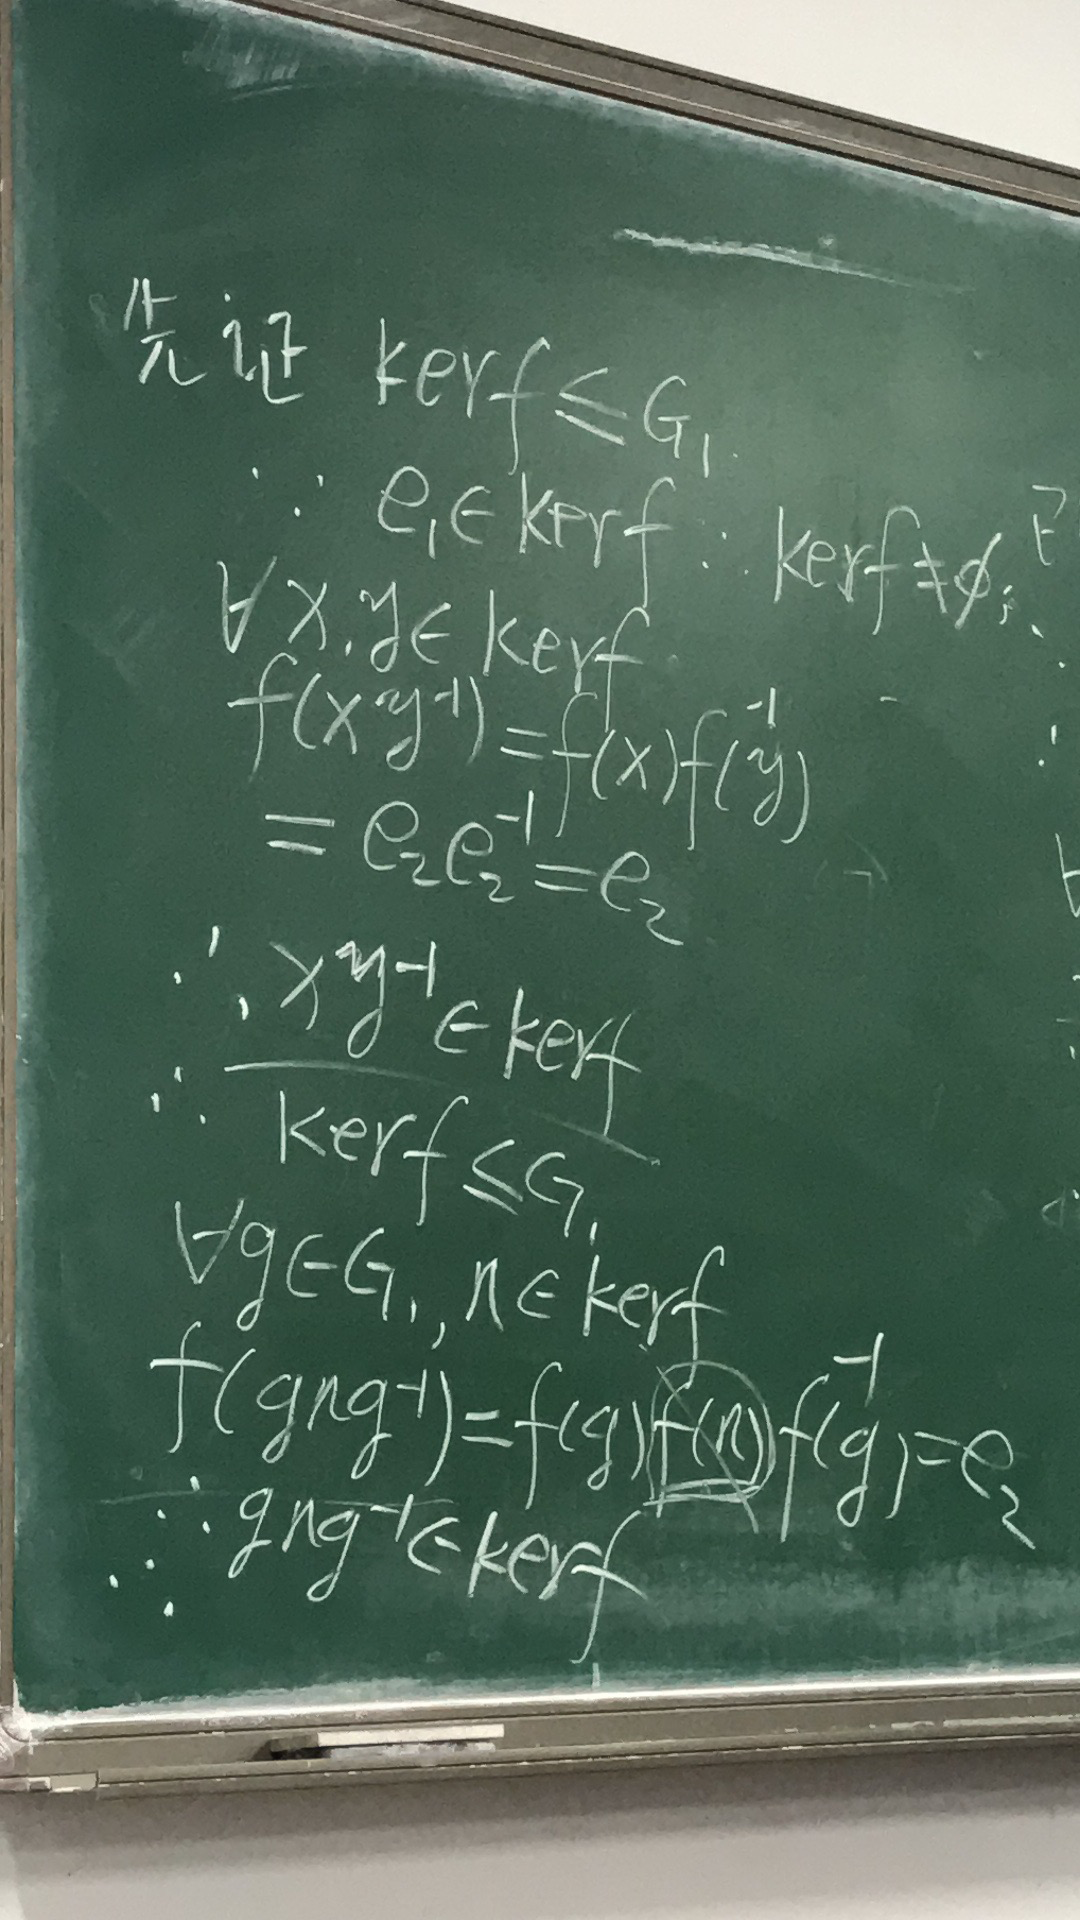 先证 kerf ≤ G₁
∵ e₁ ∈ kerf ∴ kerf ≠ ϕ;
∀x,y ∈ kerf
f(xy⁻¹) = f(x)f⁻¹(y)
= e₂e₂⁻¹ = e₂
∴ xy⁻¹ ∈ kerf
∴ kerf ≤ G₁
∀g ∈ G₁, n ∈ kerf
f(gng⁻¹) = f(g)f(n)f⁻¹(g) = e₂
∴ gng⁻¹ ∈ kerf
∴